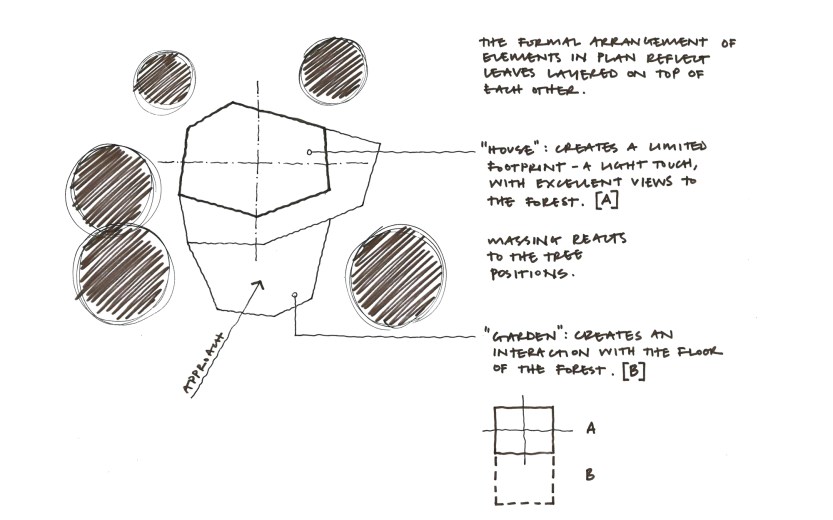 THE FORMAL ARRANGEMENT OF
ELEMENTS IN PLAN REFLECT
LEAVES LAYERED ON TOP OF
EACH OTHER.
"HOUSE": CREATES A LIMITED
FOOTPRINT - A LIGHT TOUCH,
WITH EXCELLENT VIEWS TO
THE FOREST. [A]
MASSING REACTS
TO THE TREE
POSITIONS.
"GARDEN": CREATES AN
INTERACTION WITH THE FLOOR
OF THE FOREST. [B]
APPROACH
A
B